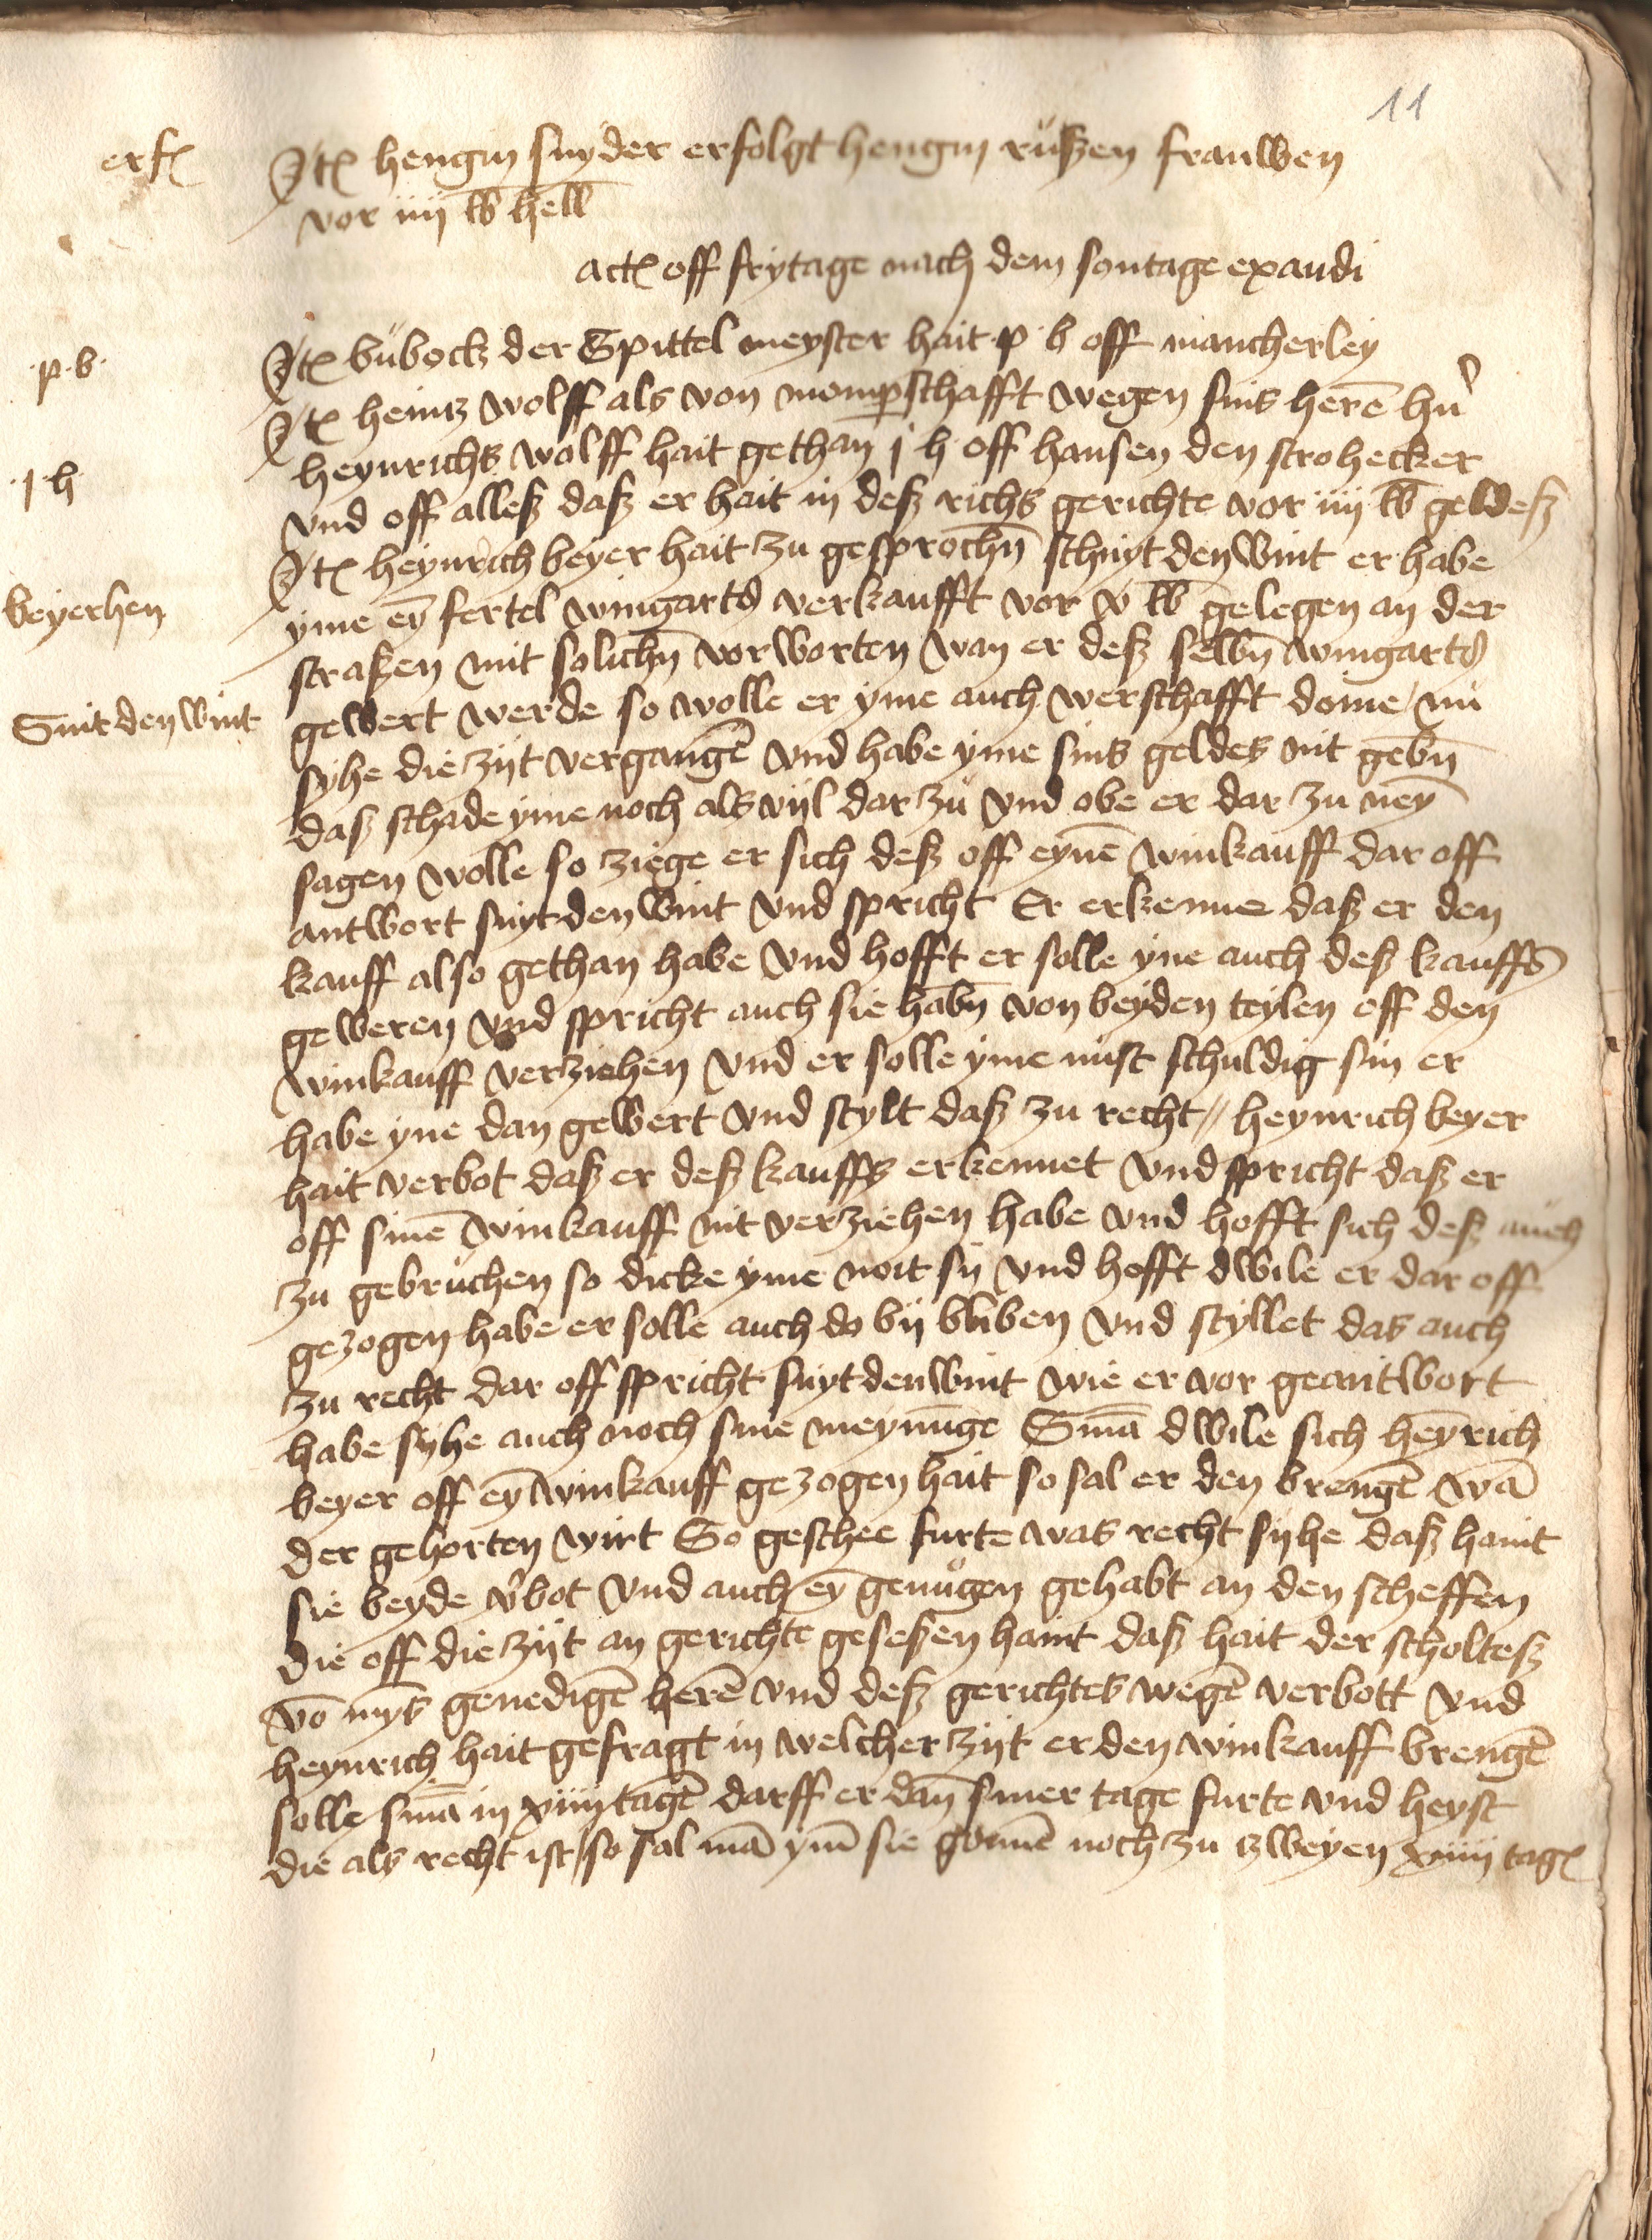 11
erf
Jt hengin snyder erfolgt hengin rußen frauwen
vor iiij lb hell
act off frytage nach dem sontage exaudi
p. b.
Jt bübock der Spittel meyster hait p b off mancherley
Jt heintz wolff als von momperschafft wegen sins herē hñ
1 h
heynrichs wolff hait gethan j h off hansen den strohecker
vnd off alleß daß er hait in deß richs gerichte vor iiij lb geldeß
Jt heynrich beyer hait zu gesprochn̄ schnyt den wint er habe
beyerhen
yme eȳ fertel wingartß verkaufft vor v lb gelegen an der
straßen mit solichn̄ vorworten wan er deß selbn̄ wingartß
Snit den wint
gewert werde so wolle er yme auch werschafft doine / nu
syhe die zijt vergangē vnd habe yme sins geldes nit gebn̄
daß schade yme noch als vijl dar zu vnd obe er dar zu neȳ
sagen wolle so ziege er sich deß off eynē winkauff dar off
antwort snyt den wint vnd spricht Er erkenne daß er den
kauff also gethan habe vnd hofft er solle yne auch deß kauffs
geweren vnd spricht auch sie habn̄ von beyden teylen off den
winkauff verziehen vnd er solle yme nust schuldig sin er
habe yne dan gewert vnd stylt daß zu recht // heynrich beyer
hait verbot daß er deß kauffs erkennet vnd spricht daß er
off sinē winkauff nit verziehen habe vnd hofft sich deß auch
zu gebruchen so dicke yme noit sy vnd hofft dwile er dar off
gezogen habe er solle auch do by bliben vnd styllet das auch
zu recht dar off spricht snyt den wint wie er vor geantwort
habe syhe auch noch sine meynūge Sn̄ia dwile sich heȳrich
beyer off eȳ winkauff gezogen hait so sal er den brengē wā
der gehorten wirt So geschee furte was recht syhe daß haint
sie beyde v'bot vnd auch eȳ genugen gehabt an den scheffen
die off die zijt an gerichte geseßen haint daß hait der scholteß
vō myͫs genedigē herē vnd deß gerichtes wegē verbott vnd
heynrich hait gefragt in welcher zijt er den winkauff brengē
solle sn̄ia in xiiij tagē darff er dan̄ siner tage furte vnd heyst
die als recht ist / so sal mā ym̄ sie gonnē noch zu zweyen xiiij tag